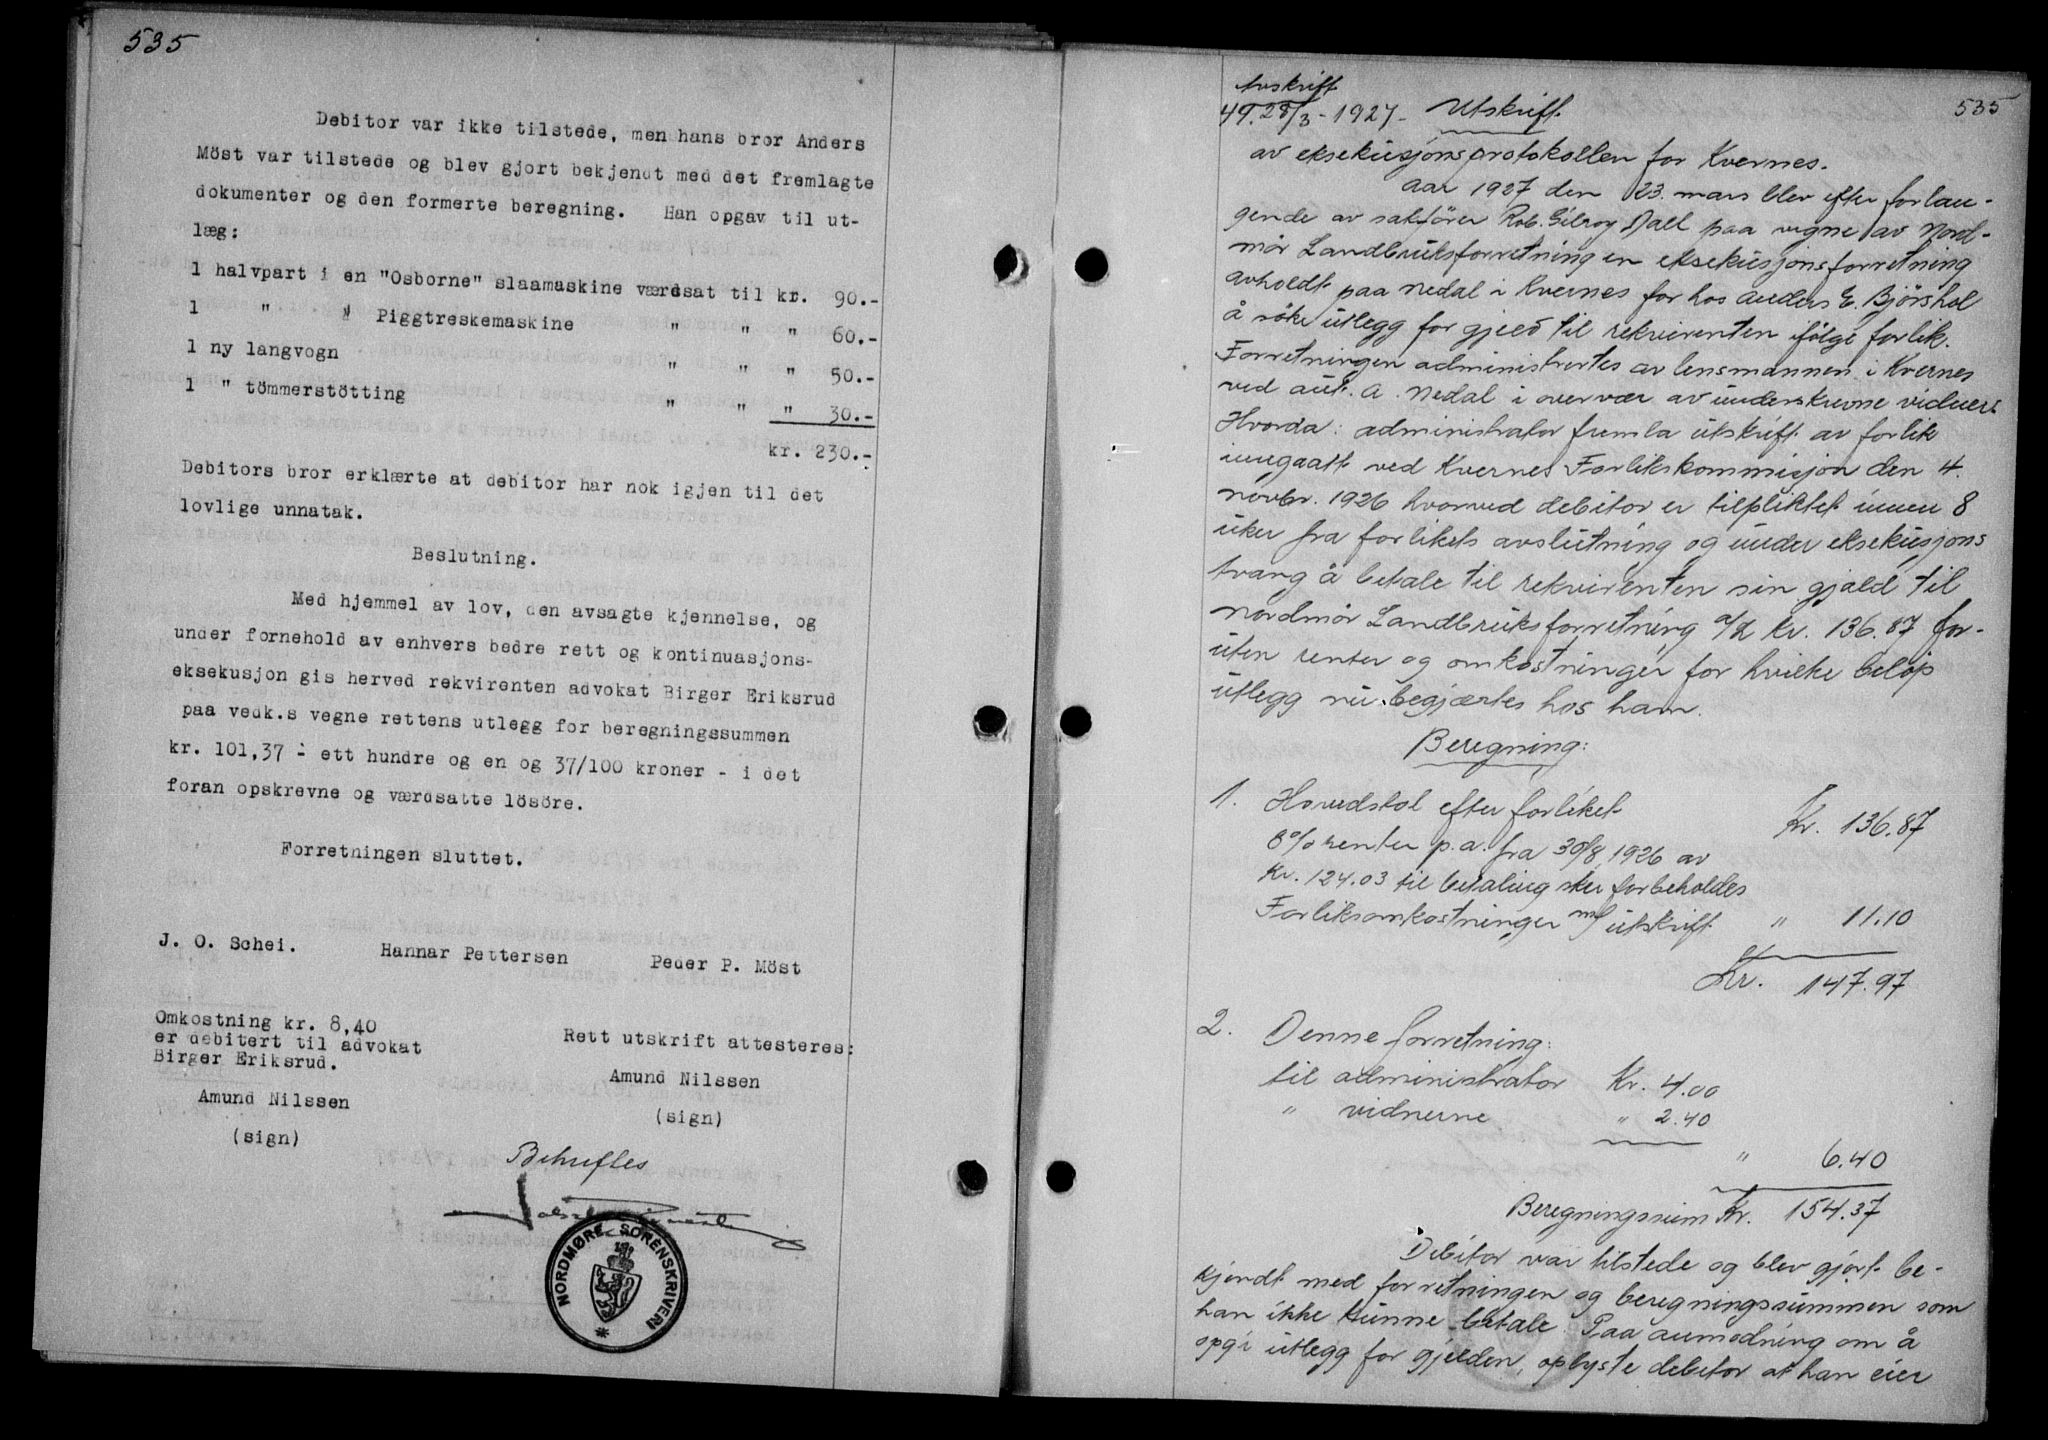 535
Debitor var ikke tilstede, men hans bror Anders
Möst var tilstede og blev gjort bekjendt med det fremlagte
dokumenter og den formerte beregning. Han opgav til ut-
læg:
1 halvpart i en "Osborne" slaamaskine værdsat til kr. 90.-
1 " " Piggtreskemaskine " " " 60.-
1 ny langvogn " " " 50.-
1 " tömmerstötting " " " 30.-
kr. 230.-
Debitors bror erklærte at debitor har nok igjen til det
lovlige unnatak.
Beslutning.
Med hjemmel av lov, den avsagte kjennelse, og
under fornehold av enhvers bedre rett og kontinuasjons-
eksekusjon gis herved rekvirenten advokat Birger Eriksrud
paa vedk.s vegne rettens utlegg for beregningssummen
kr. 101,37 - ett hundre og en og 37/100 kroner - i det
foran opskrevne og værdsatte lösöre.
Forretningen sluttet.
J. O. Schei. Hannar Pettersen Peder P. Möst
Omkostning kr. 8,40
er debitert til advokat
Birger Eriksrud.
Amund Nilssen
(sign)
Rett utskrift attesteres:
Amund Nilssen
(sign)
Bekreftes
NORDMØRE SORENSKRIVERI
535
Avskrift
49. 28/3 - 1927 - Utskrift
av eksekusjonsprotokollen for Kvernes.
Aar 1927 den 23. mars blev efter forlan-
gende av sakförer Rob. Gilroy Dall paa vegne av Nord-
mör Landbruksforretning en eksekusjonsforretning
avholdt paa Nedal i Kvernes for hos Anders E. Bjørshol
å söke utlegg for gjeld til rekvirenten ifölge forlik.
Forretningen administrertes av lensmannen i Kvernes
ved aut. A. Nedal i overvær av underskrevne vidner:
Hvorda: administrator fremla utskrift av forlik
inngaatt ved Kvernes Forlikskommisjon den 4.
novbr. 1926 hvorved debitor er tilpliktet innen 8
uker fra forlikets avslutning og under eksekusjons
tvang å betale til rekvirenten sin gjæld til
Nordmör Landbruksforretning a/L kr. 136.87 for-
uten renter og omkostninger for hvilke belöp
utlegg nu begjærtes hos ham.
Beregning:
1. Hovedstol efter forliket Kr. 136.87
8% renter p.a. fra 30/8 1926 av
kr. 124.03 til betaling sker forbeholdes
Forliksomkostninger m/ utskrift " 11.10
Kr. 147.97
2. Denne forretning:
til administrator Kr. 4.00
" vidnerne " 2.40
" 6.40
Beregningssum Kr. 154.37
Debitor var tilstede og blev gjort be-
kjendt med forretningen og beregningssummen som
han ikke kunne betale. Paa anmodning om å
opgi utlegg for gjelden, oplyste debitor at han eier